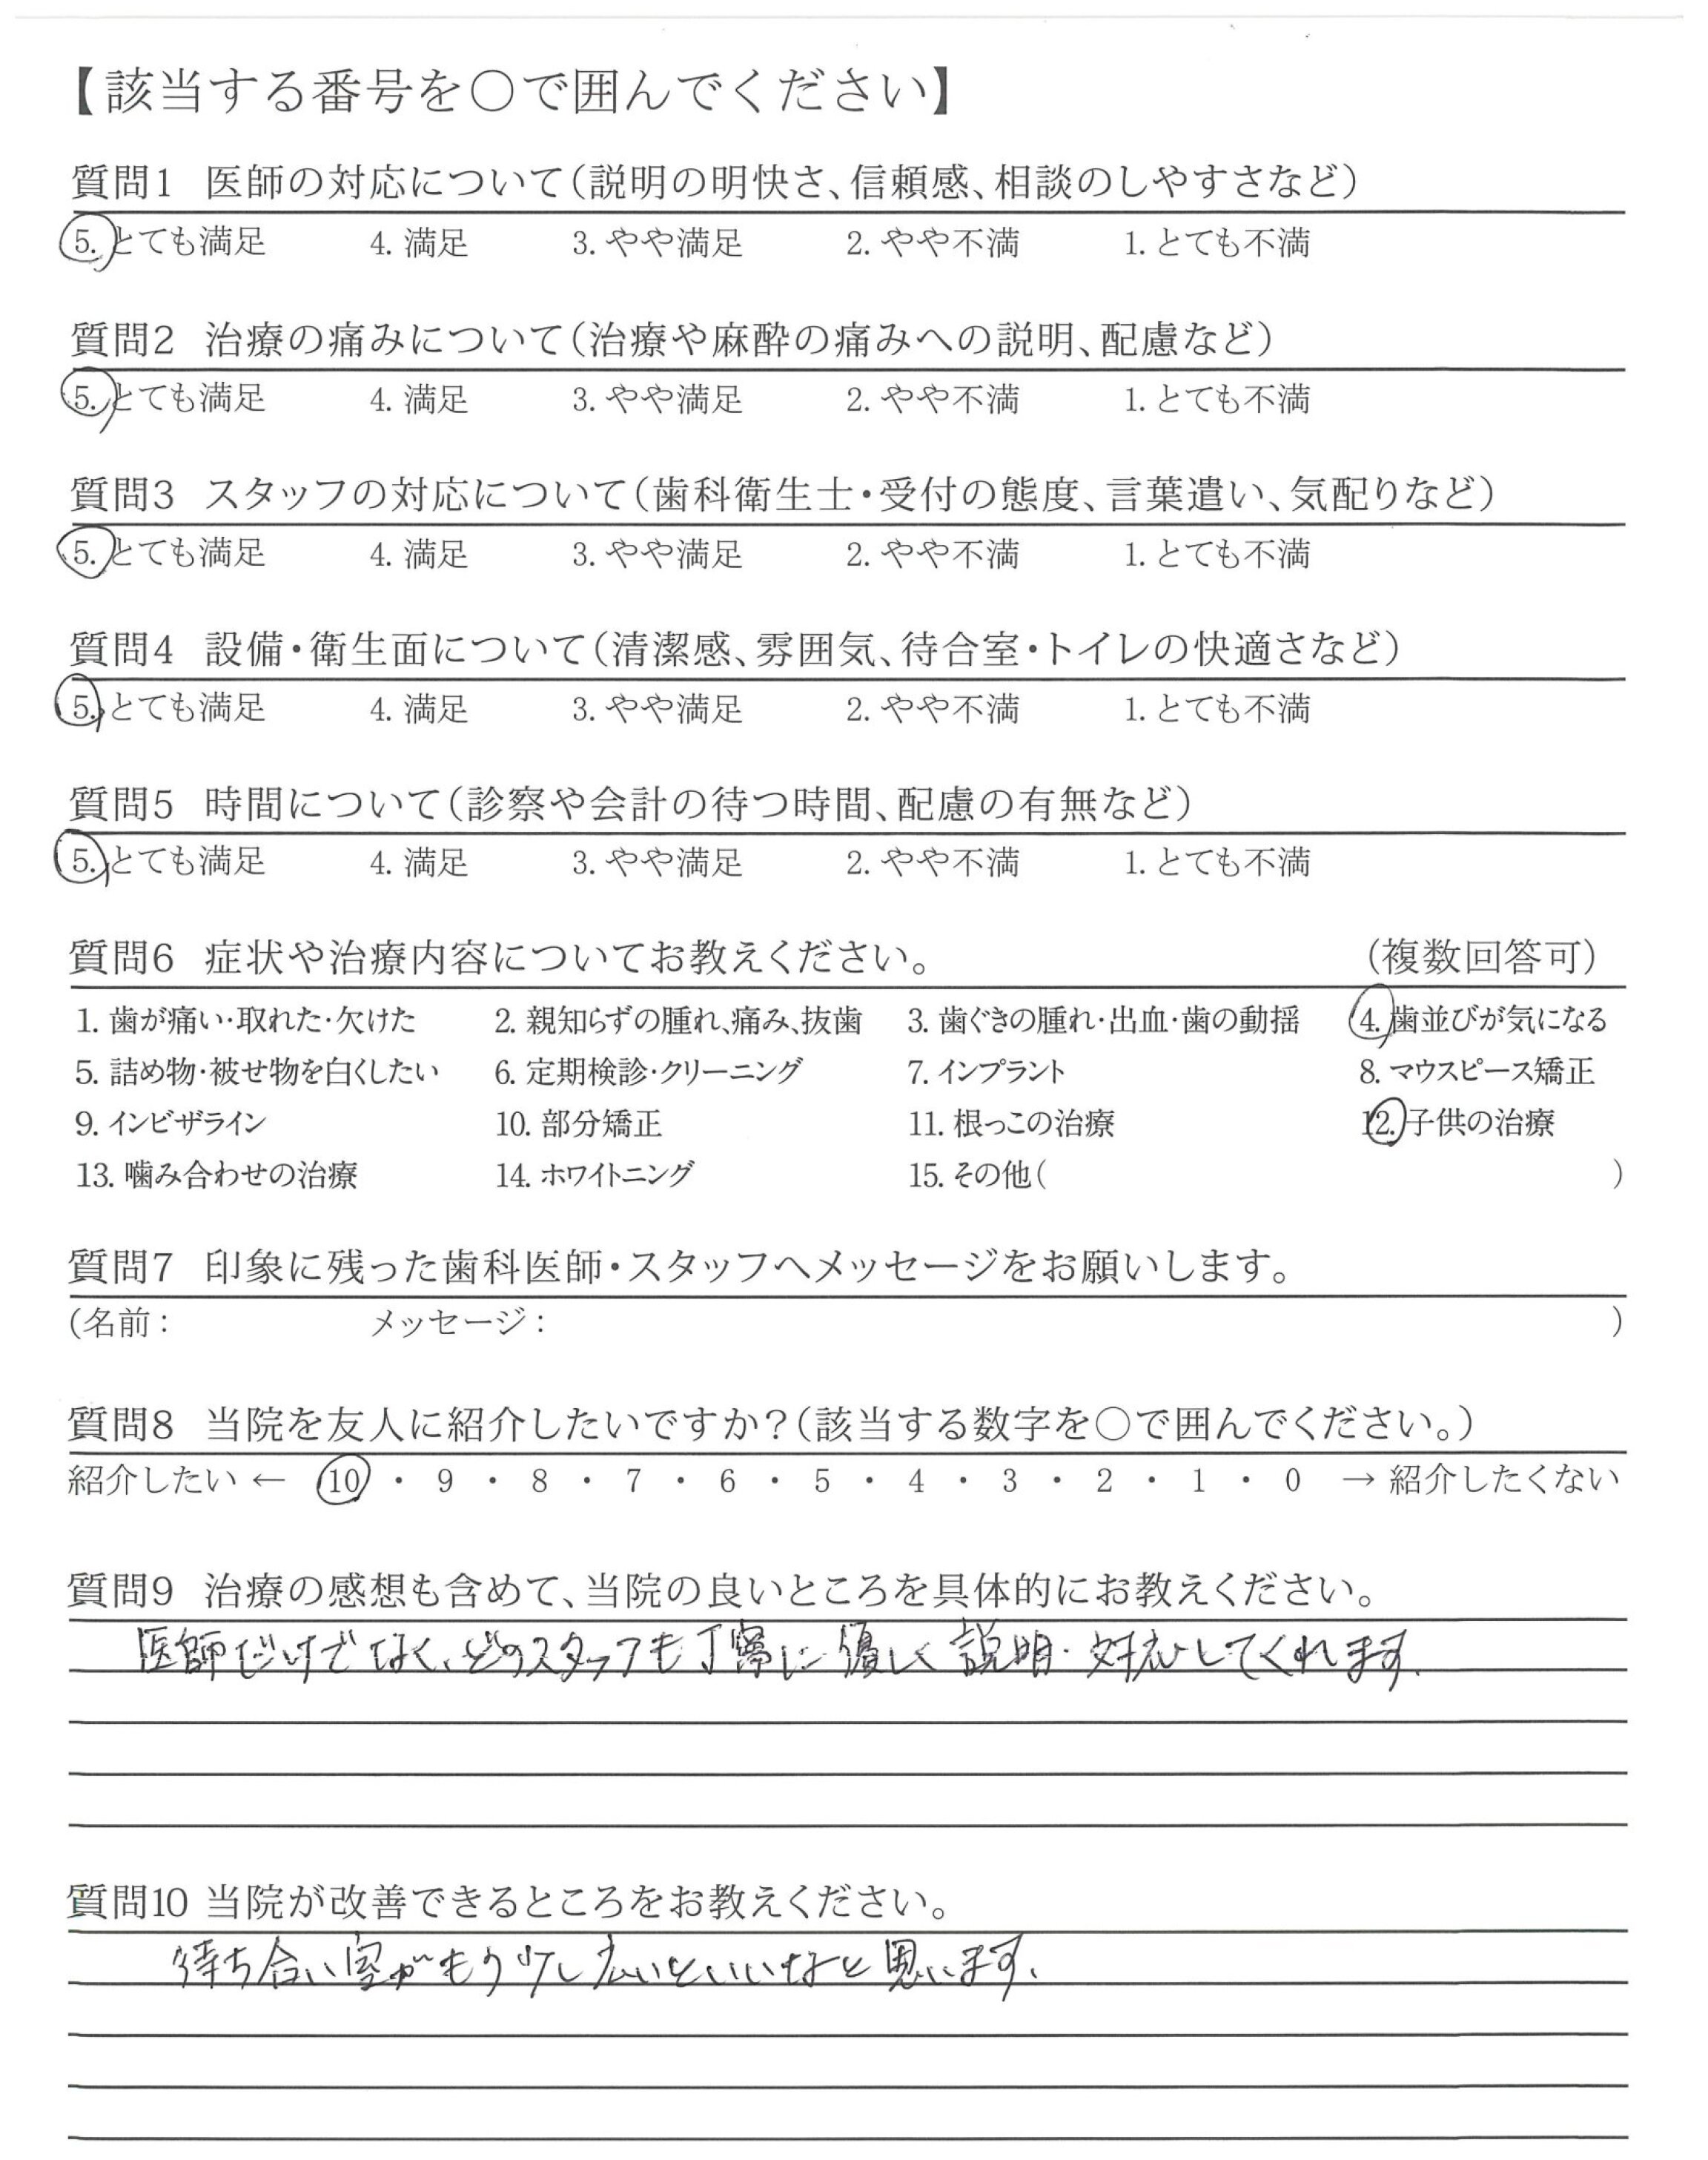 【該当する番号を○で囲んでください】
質問1 医師の対応について（説明の明快さ、信頼感、相談のしやすさなど）
5. とても満足 4. 満足 3. やや満足 2. やや不満 1. とても不満
質問2 治療の痛みについて（治療や麻酔の痛みへの説明、配慮など）
5. とても満足 4. 満足 3. やや満足 2. やや不満 1. とても不満
質問3 スタッフの対応について（歯科衛生士・受付の態度、言葉遣い、気配りなど）
5. とても満足 4. 満足 3. やや満足 2. やや不満 1. とても不満
質問4 設備・衛生面について（清潔感、雰囲気、待合室・トイレの快適さなど）
5. とても満足 4. 満足 3. やや満足 2. やや不満 1. とても不満
質問5 時間について（診察や会計の待つ時間、配慮の有無など）
5. とても満足 4. 満足 3. やや満足 2. やや不満 1. とても不満
質問6 症状や治療内容についてお教えください。 （複数回答可）
1. 歯が痛い・取れた・欠けた 2. 親知らずの腫れ、痛み、抜歯 3. 歯ぐきの腫れ・出血・歯の動揺 4. 歯並びが気になる
5. 詰め物・被せ物を白くしたい 6. 定期検診・クリーニング 7. インプラント 8. マウスピース矯正
9. インビザライン 10. 部分矯正 11. 根っこの治療 12. 子供の治療
13. 噛み合わせの治療 14. ホワイトニング 15. その他（ ）
質問7 印象に残った歯科医師・スタッフへメッセージをお願いします。
（名前： メッセージ： ）
質問8 当院を友人に紹介したいですか？（該当する数字を○で囲んでください。）
紹介したい ← 10 ・ 9 ・ 8 ・ 7 ・ 6 ・ 5 ・ 4 ・ 3 ・ 2 ・ 1 ・ 0 → 紹介したくない
質問9 治療の感想も含めて、当院の良いところを具体的にお教えください。
医師だけでなく、どのスタッフも丁寧に優しく説明・対応してくれます。
質問10 当院が改善できるところをお教えください。
待ち合い室がもう少し広いといいなと思います。